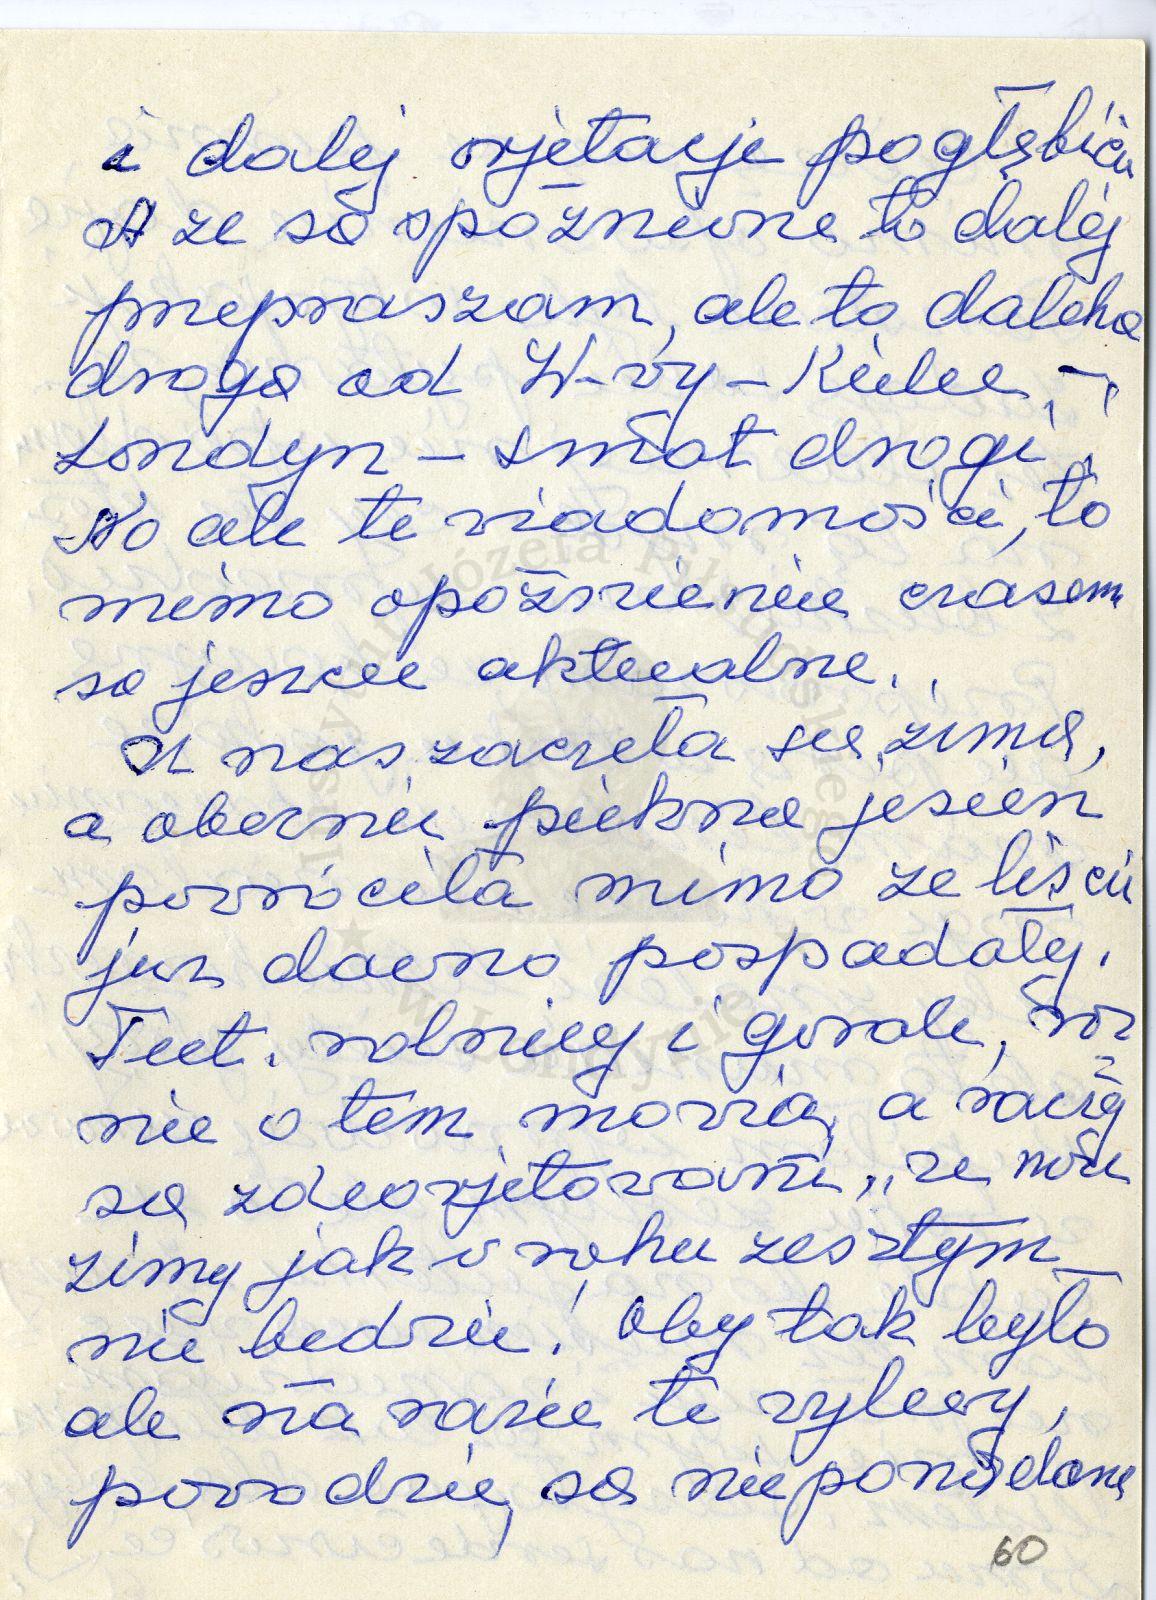 i dalej wjetacje pogłębicie
A ze są opóżnione to dalej
przepraszam, ale to daleka
droga od W-wy – Kielce, –,
Londyn – świat drogi,
No ale te wiadomości, to
mimo opóżnienie czasem
są jeszcze aktualne..
U nas zaczęła się zima,
a obecnie piekna jesień
powróciła mimo ze liscie
juz dawno pospadały.
Tut. rolnicy i gorale, róz
nie o tem mowią, a raczej
są zdeorjetowani, "ze może
zimy jak w roku zesztym
nie bedzie! Oby tak było
ale na razie te wylewy,
powodzie, są nieporządane
60
Instytut Józefa Piłsudskiego
w Londynie